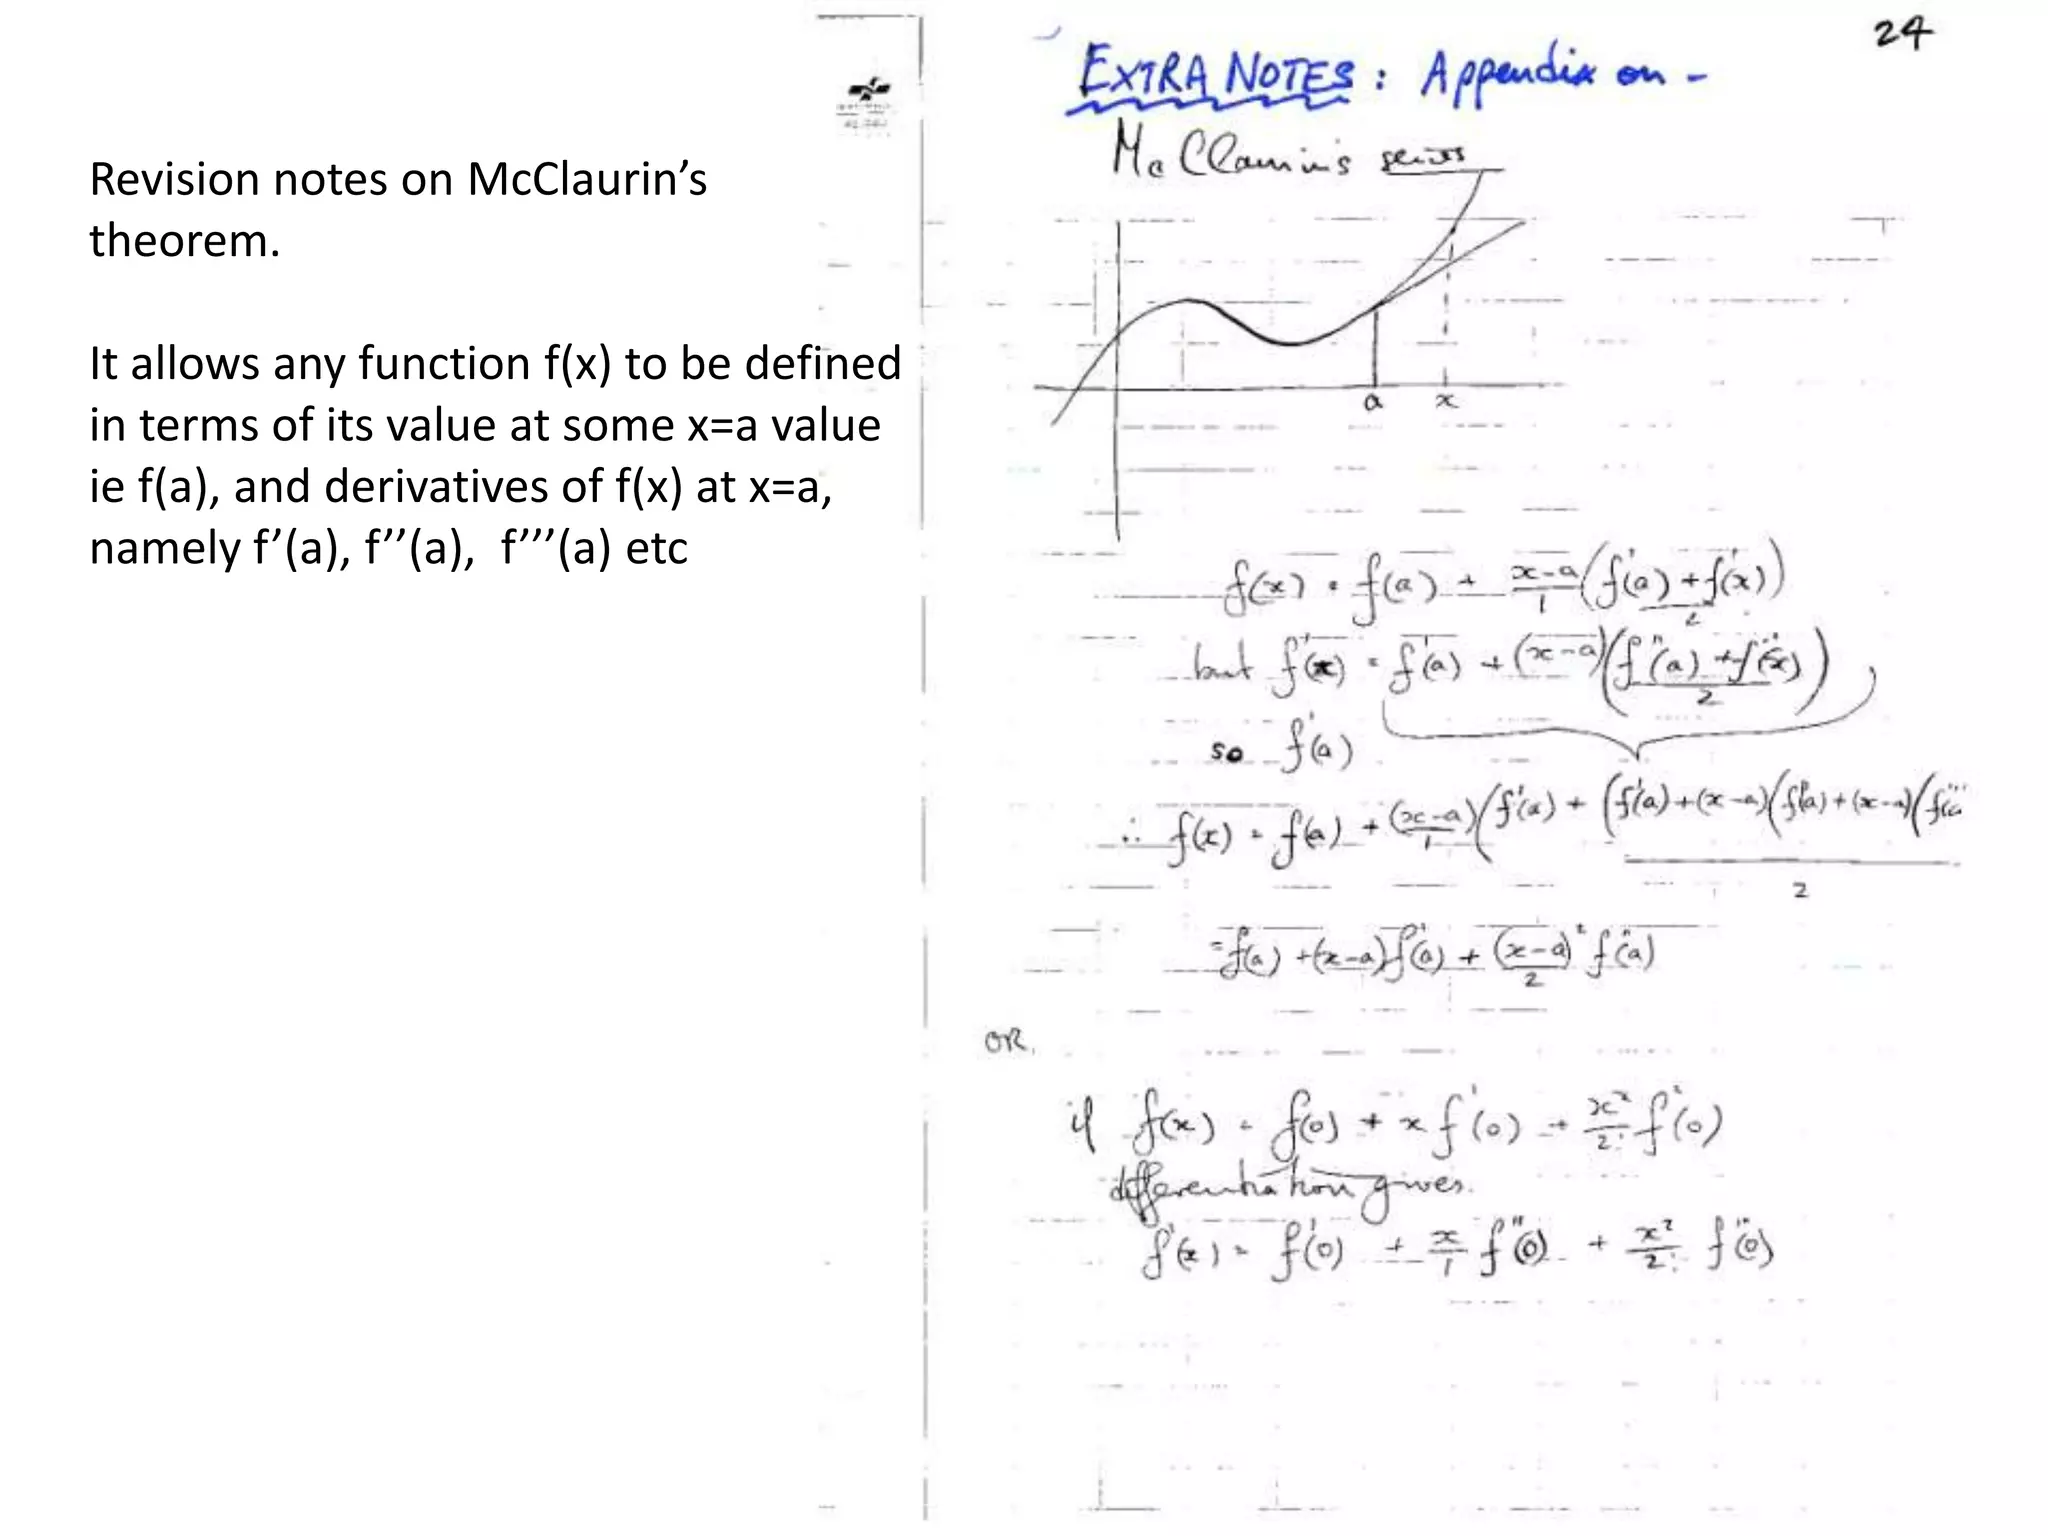 Revision notes on McClaurin’s
theorem.
It allows any function f(x) to be defined
in terms of its value at some x=a value
ie f(a), and derivatives of f(x) at x=a,
namely f’(a), f’’(a),  f’’’(a) etc
24
EXTRA NOTES : Appendix on -
McClaurin's series
a x
f(x) = f(a) + x-a/1 (f'(a) + f'(x)/2)
but f'(x) = f'(a) + (x-a)(f''(a) + f''(x)/2)
so f'(a)
∴ f(x) = f(a) + (x-a)/1 (f'(a) + (f'(a)+(x-a)(f''(a)+(x-a)(f'''(a
2
= f(a) + (x-a)f'(a) + (x-a)²/2 f''(a)
OR.
if f(x) = f(0) + x f'(0) + x²/2! f²(0)
differentiation gives.
f'(x) = f'(0) + x/1 f''(0) + x²/2! f'''(0)